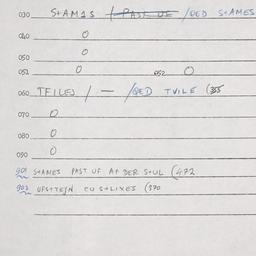 030 STAMES /PAST UF /QED STAMES
040 O
050 O
051 O 052 O
060 TFILES / — /QED TVILE (355
070 O
080 O
090 O
901 STAMES PAST UF AP DER STUL (472
902 UPSTTEJN CU STLIXES (370